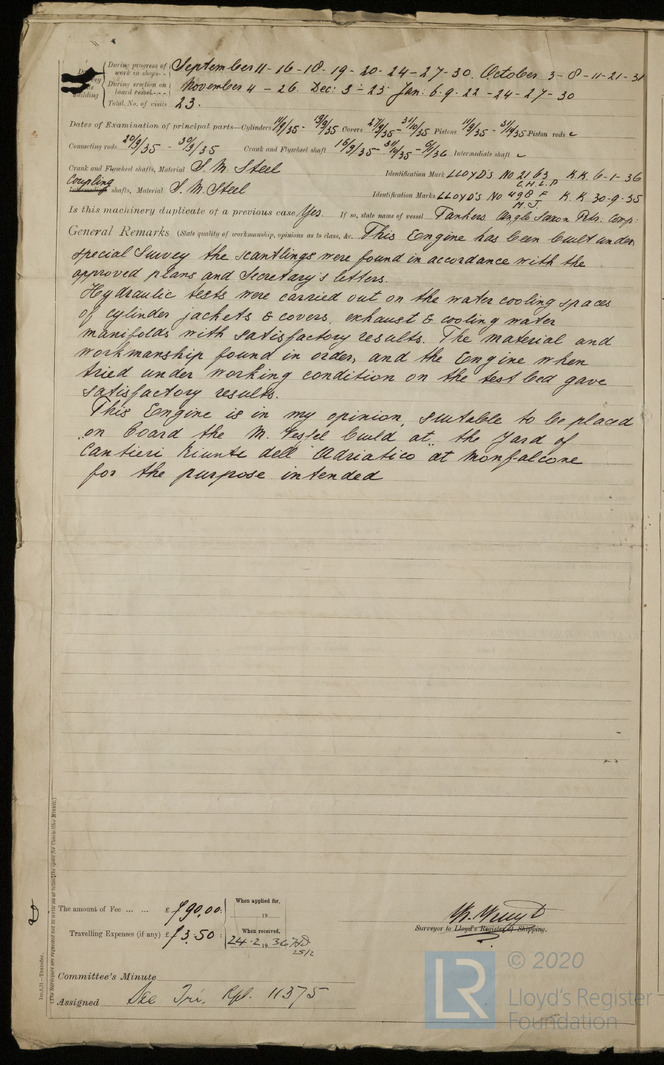 During progress of work in shops - - September 11 - 16 - 18 - 19 - 20 - 24 - 27 - 30. October. 3 - 8 - 11 - 21 - 31
During erection on board vessel - - - November 4 - 26. Dec: 3 - 23. Jan: 6. 9. 22 - 24 - 27 - 30
Building
Total No. of visits 23.
Dates of Examination of principal parts—Cylinders Covers Pistons Piston rods
Connecting rods 20/9/35 - 30/9/35 Crank and Flywheel shaft Intermediate shaft
Crank and Flywheel shafts, Material S. M. Steel Identification Mark LLOYD'S No 2163 K.K. 6-1-36
Coupling shafts, Material S. M. Steel Identification Marks LLOYD'S No 498 K.K. 30-9-35
Is this machinery duplicate of a previous case Yes. If so, state name of vessel Tankers. Anglo Saxon Petr. Comp:
General Remarks (State quality of workmanship, opinions as to class, &c. This Engine has been built under
special Survey the scantlings were found in accordance with the
approved plans and Secretary's letters.
Hydraulic tests were carried out on the water cooling spaces
of cylinder jackets & covers, exhaust & cooling water
manifolds with satisfactory results. The material and
workmanship found in order, and the Engine when
tried under working condition on the test bed gave
satisfactory results.
This Engine is in my opinion, suitable to be placed
on board the M. Vessel build at the Yard of
Cantieri Riuniti dell' Adriatico at Monfalcone
for the purpose intended
The amount of Fee ... ... £ 90.00:
When applied for,
19
Travelling Expenses (if any) £ 3.50:
When received,
24.2.1936
25/2
Surveyor to Lloyd's Register of Shipping.
Committee's Minute
Assigned See Tri. Rpt. 11375
© 2020
LR
Lloyd's Register
Foundation